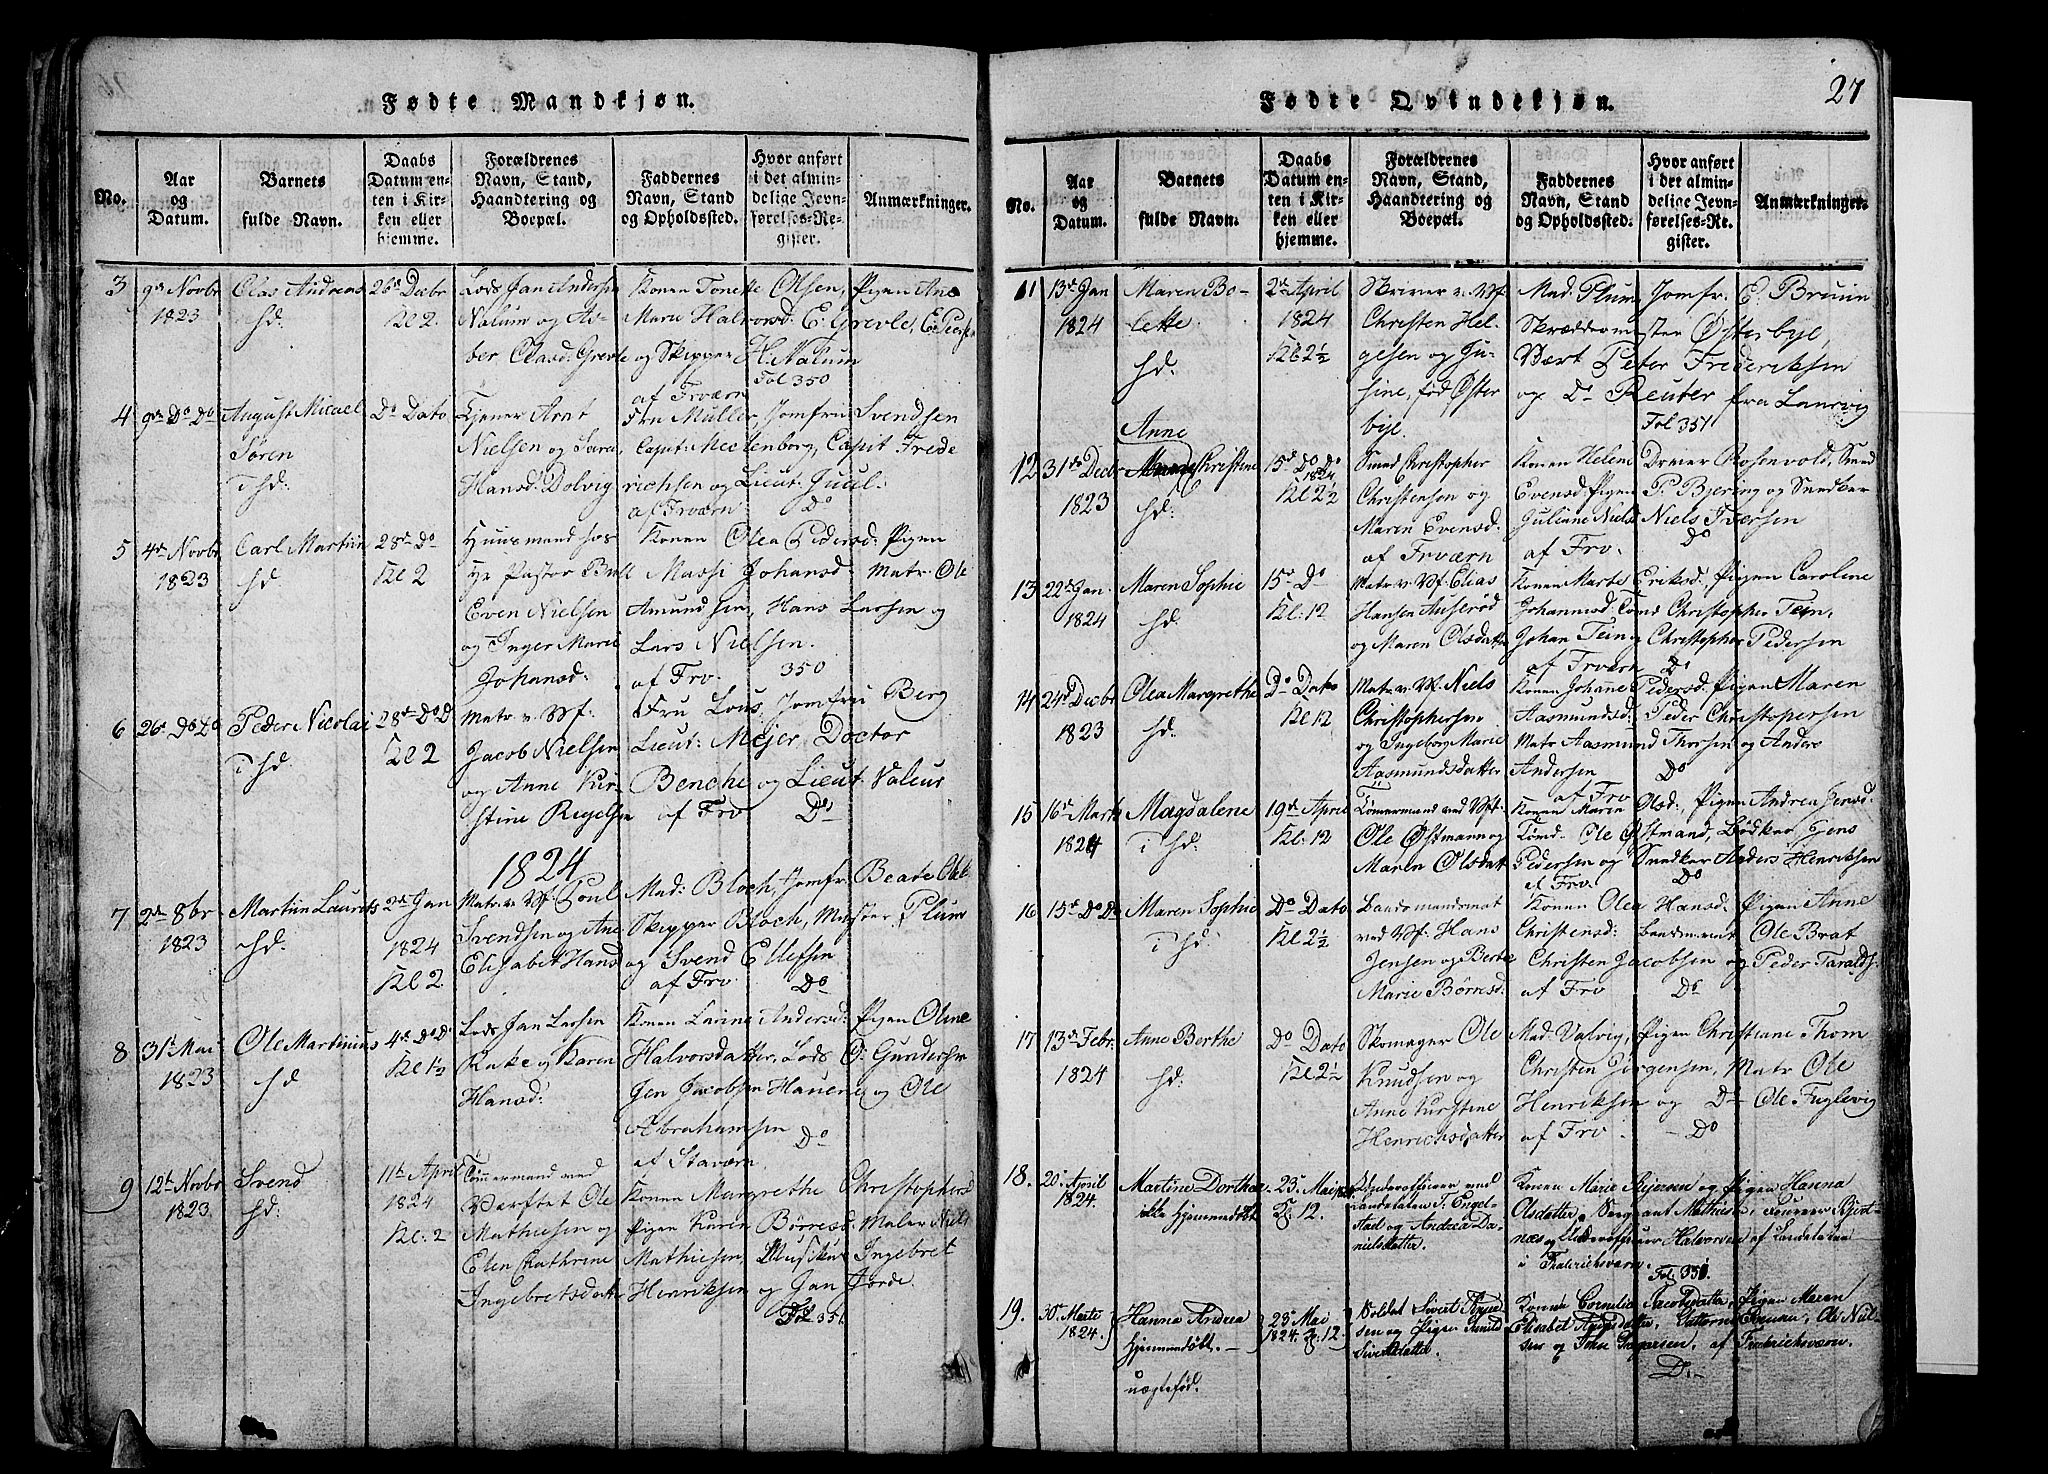 Fødte Mandkjøn.
No.
Aar og Datum.
Barnets fulde Navn.
Daabs Datum enten i Kirken eller hjemme.
Forældrenes Navn, Stand, Haandtering og Boepæl.
Faddernes Navn, Stand og Opholdssted.
Hvor anført i det almindelige Jevnførelses-Register.
Anmærkninger.
3 9de Novbr Clas Andreas 26de Decbr Lods Jan Andersen Konen Tonette Olsen, Pigen Ane
1823 hd. Kl 2. Nalum og As- Marie Halvorsd: E: Grevle,
ber Clasd: Grevle og Skipper H. Nalum
af Frværn Fol 350
4 9de Do Do August Micael Do Dato Tjener Arnt Fru Müller, Jomfru Svendsen
Søren Nielsen og Sara Capit Mecklenborg, Capit Frede
i hd: Hansd: Dolvig richsen og Lieut: Juul:
af Frværn: Do
5 4de Novbr Carl Martin 28de Do Huusmand hos Konen Olea Pedersd: Pigen
1823 hd: Kl 2 Hr Pastor Bull Massi Johansd: Matr: Ole
Even Nielsen Amundsen, Hans Larsen og
og Inger Marie Lars Nielsen.
Johansd: af Frv. 350
6 26de Do Do Peder Nicolai 28de Do D Matr v. Vf. Fru Lous, Jomfru Berg
i hd. Kl 2 Jacob Nielsen Lieut: Mejer, Doctor
og Anne Kir- Benche og Lieut. Valeur
stine Regelsen af Frv Do
1824
7 2de 8br Martin Laurits 2de Jan Matr v. Vf. Poul Mad: Bloch, Jomfr: Beate
1823 hd. 1824 Svendsen og Ane Skipper Bloch, Mester Plum
Kl 2. Elisabet Hansd og Svend Ellefsen
af Frv Do
8 31te Mai Ole Martinius 4de Do D Lods Jan Larsen Konen Larine Andersd: Pigen Oline
1823 hd Kl 1½ Rake og Karen Halvorsdatter, Lods O: Gundersen
Hansd: Jen Jacobsen Hauen, og Ole
Abrahamsen
af Staværn. Do
9 12te Novbr Svend 11te April Tømmermand ved Konen Margrethe Christophersd
1823. hd: 1824 Værftet Ole Pigen Karen Børresd: Maler Niels
Kl: 2 Mathiesen og Mathiesen, Musikus Ingebret
Elen Cathrine Henriksen og Jan Jorde.
Ingebretsdatt Fol 351.
Fødte Qvindekjøn.
27
No.
Aar og Datum.
Barnets fulde Navn.
Daabs Datum enten i Kirken eller hjemme.
Forældrenes Navn, Stand, Haandtering og Boepæl.
Faddernes Navn, Stand og Opholdssted.
Hvor anført i det almindelige Jevnførelses-Register.
Anmærkninger.
11 13de Jan Maren Bo- 2de April Skriver v. Vf Mad. Plum, Jomfr. E. Bruun
1824 lette. 1824 Christen Hel- Skræddermester Østerbye,
hd. Kl 2½ gesen og Ju- Vært Peter Frederiksen
sine, fød Øster og Do Reuter fra Laurvig
bye. Fol 351
Anne
12 31de Decbr Christine 15de Do Do Smed Christopher Konen Helene Dreier Rosenvold, Smed
1823 hd: 1824 Kl 2½ Christensen og Evensd: Pigen P. Bjering og Snedker
Maren Evensd: Juliane Niels Niels Iversen
af Frværn af Frv. Do
13 22de Jan. Maren Sophie 15de Do Matr v. Vf: Elias Konen Marte Eriksd: Pigen Carolene
1824 hd. Kl: 12 Hansen Auserød Johannesd: Tømd Christopher Tein,
og Maren Olsdatter Johan Tein og Christopher Pedersen
af Frværn Do
14 24de Decbr Olea Margrethe Do Dato Matr v. Vf. Niels Konen Johanne Pedersd: Pigen Maren
1823 hd. Kl 12 Christophersen Aasmundsd: Peder Christopersen
og Ingeborg Marie Matr Aasmund Thorsen og Anders
Aasmundsdatter Andersen
af Frv Do
15 16de Marts Magdalene 19de April Tømmermand ved Vf: Konen Maren Olsd:, Pigen Andrea Jensd:
1824 i hd: Kl: 12 Ole Østmann og Tømd. Ole Østmand, Bødker Jens
Maren Olsdatt Pedersen og Snedker Anders Henriksen
af Frv. Do
16 15de Do Do Maren Sophie Do Dato Landsmandsmat Konen Olea Hansd: Pigen Anne
i hd: Kl 2½ ved Vf. Hans Christensd: Ole Brat
Jensen og Berte Christen Jacobsen og Peder Taralds:
Marie Børresd: af Frv Do
17 13de Febr. Anne Berthe Do Dato Skomager Ole Mad. Valvig, Pigen Christiane Thom
1824 hd: Kl 2½ Knudsen og Christen Jørgensen, Matr Ole
Anne Kirstine Henriksen og Do Ole Fuglevig
Henrichsdatter af Frv. Do
18. 20de April Martine Dorthea 23de Mai Underofficeer ved Konen Marie Skjersen og Pigen Hanna
1824. ikke hjemmedøbt Kl. 12. Landetaten T. Engel- Olsdatter, Sergeant Mathiesen,
stad og Andrea Da- og Underofficeer Halvorsen af Landetaten
nielsdatter. i Frederichsværn. Fol. 351.
19. 30te Marts Hanna Andrea 23de Mai Soldat Sivert Konen Cornelia Jacobsdatter, Pigen Maren
1824. hjemmedøbt. 1824. Kl 12. sen og Pigen Elisabet Ole Niel-
Sivertsdatter sen og af Frederichsværn.
uægtefød. Do